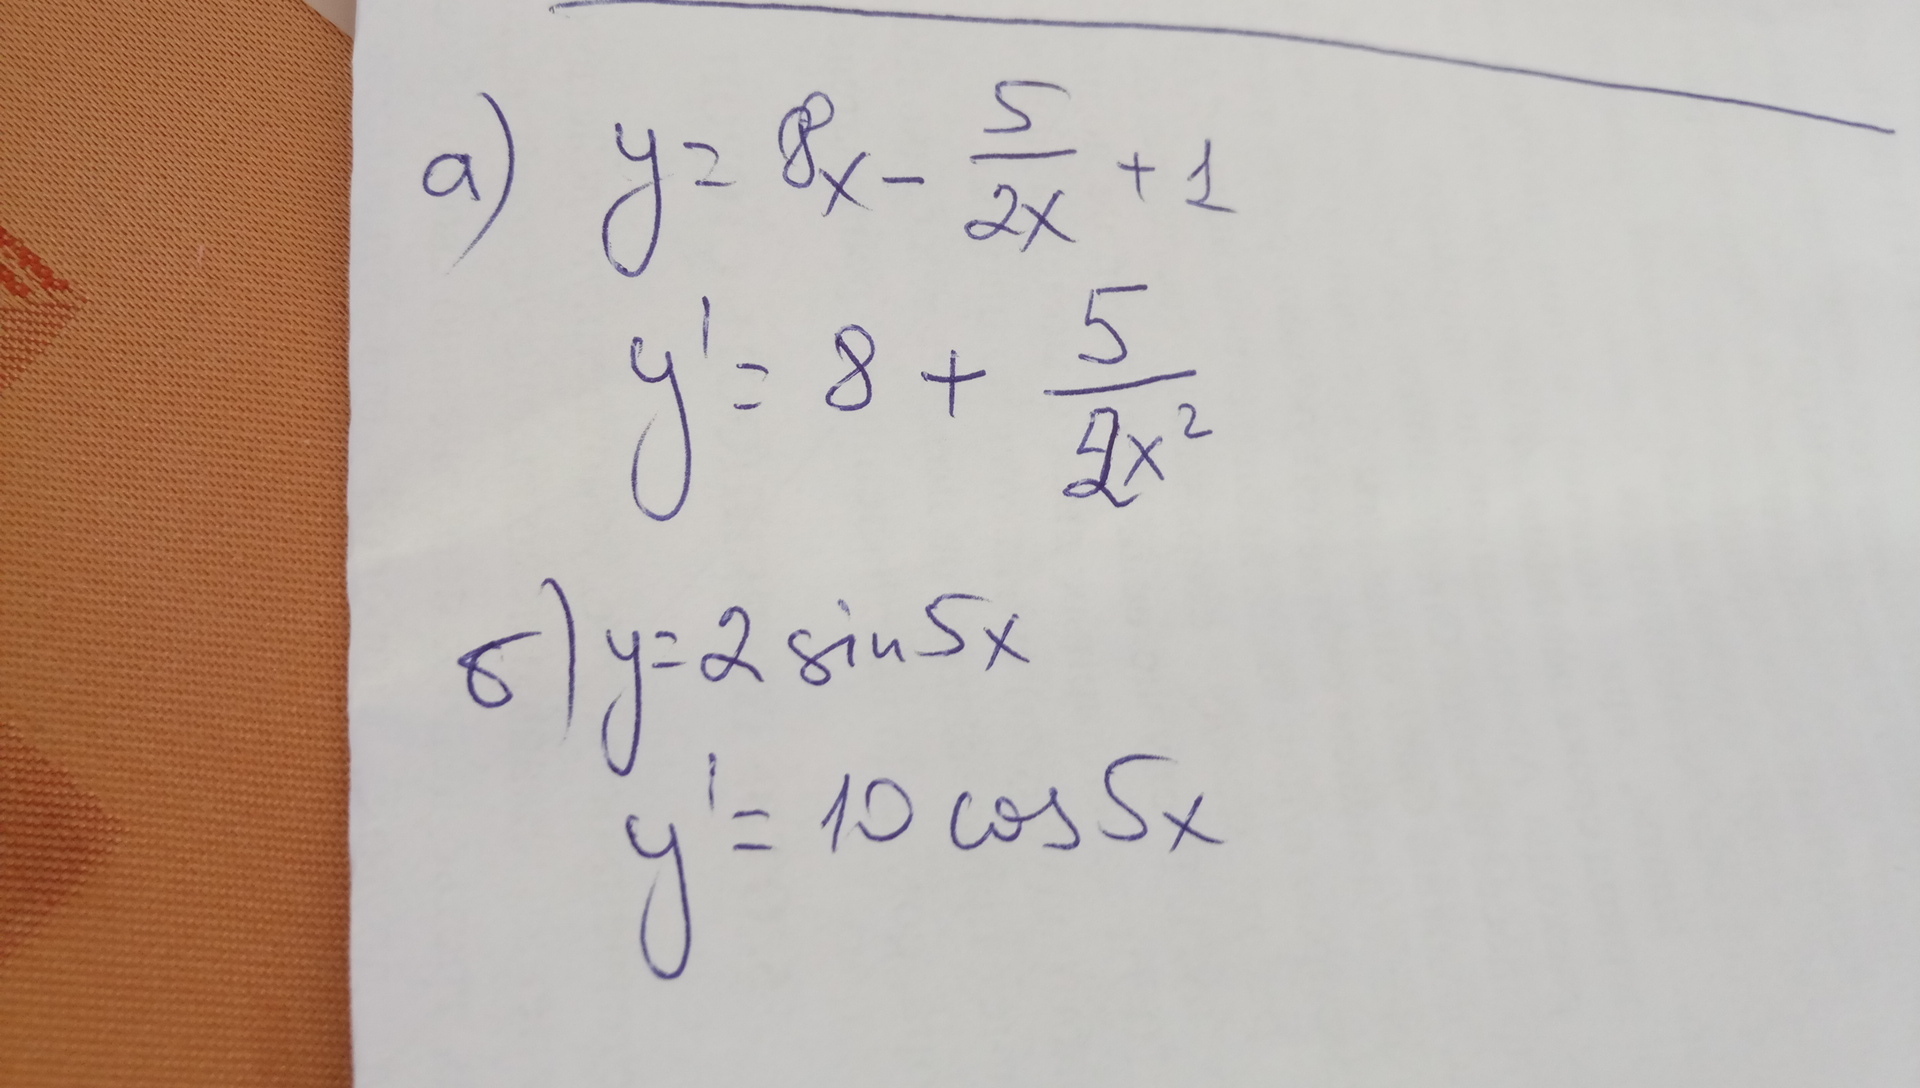 а) y = 8x - 5/(2x) + 1
y' = 8 + 5/(2x²)
б) y = 2 sin 5x
y' = 10 cos 5x